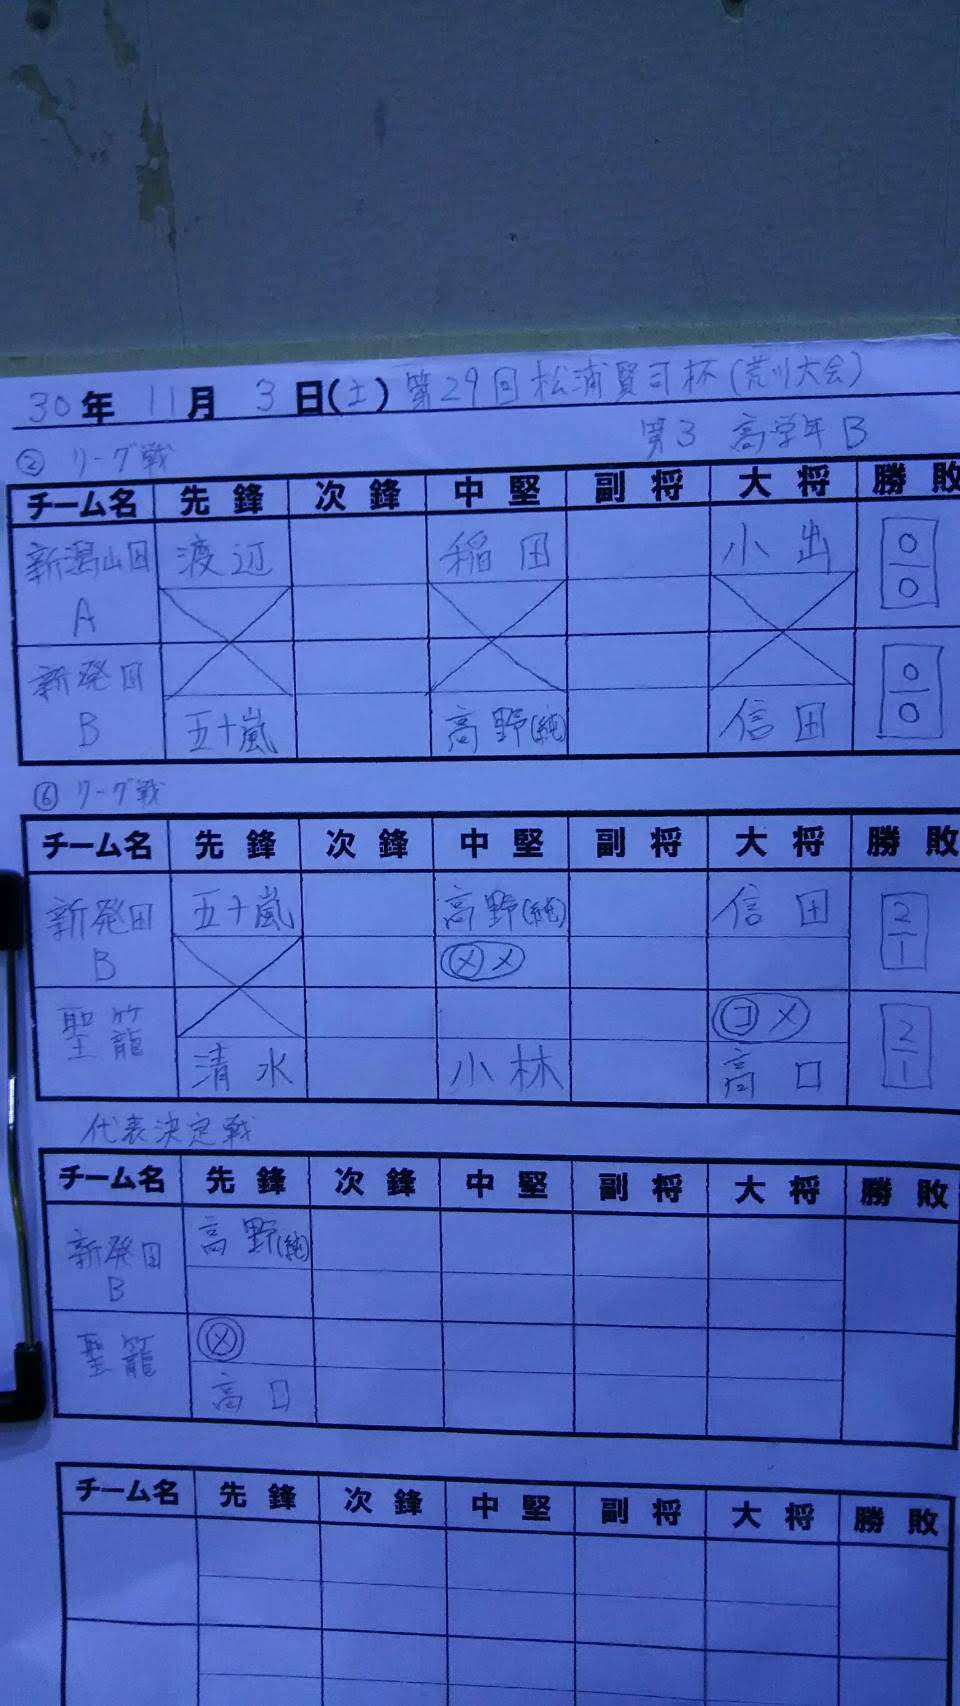 30年 11月 3日(土) 第29回松浦賢司杯(荒川大会)
第3 高学年B
② リーグ戦
チーム名 先鋒 次鋒 中堅 副将 大将 勝敗
新潟山田A 渡辺 稲田 小出 0/0
新発田B 五十嵐 高野(純) 信田 0/0
⑥ リーグ戦
チーム名 先鋒 次鋒 中堅 副将 大将 勝敗
新発田B 五十嵐 高野(純) 信田 2/1
メメ
聖籠 コメ 2/1
清水 小林 高口
代表決定戦
チーム名 先鋒 次鋒 中堅 副将 大将 勝敗
新発田B 高野(純)
聖籠 メ
高口
チーム名 先鋒 次鋒 中堅 副将 大将 勝敗